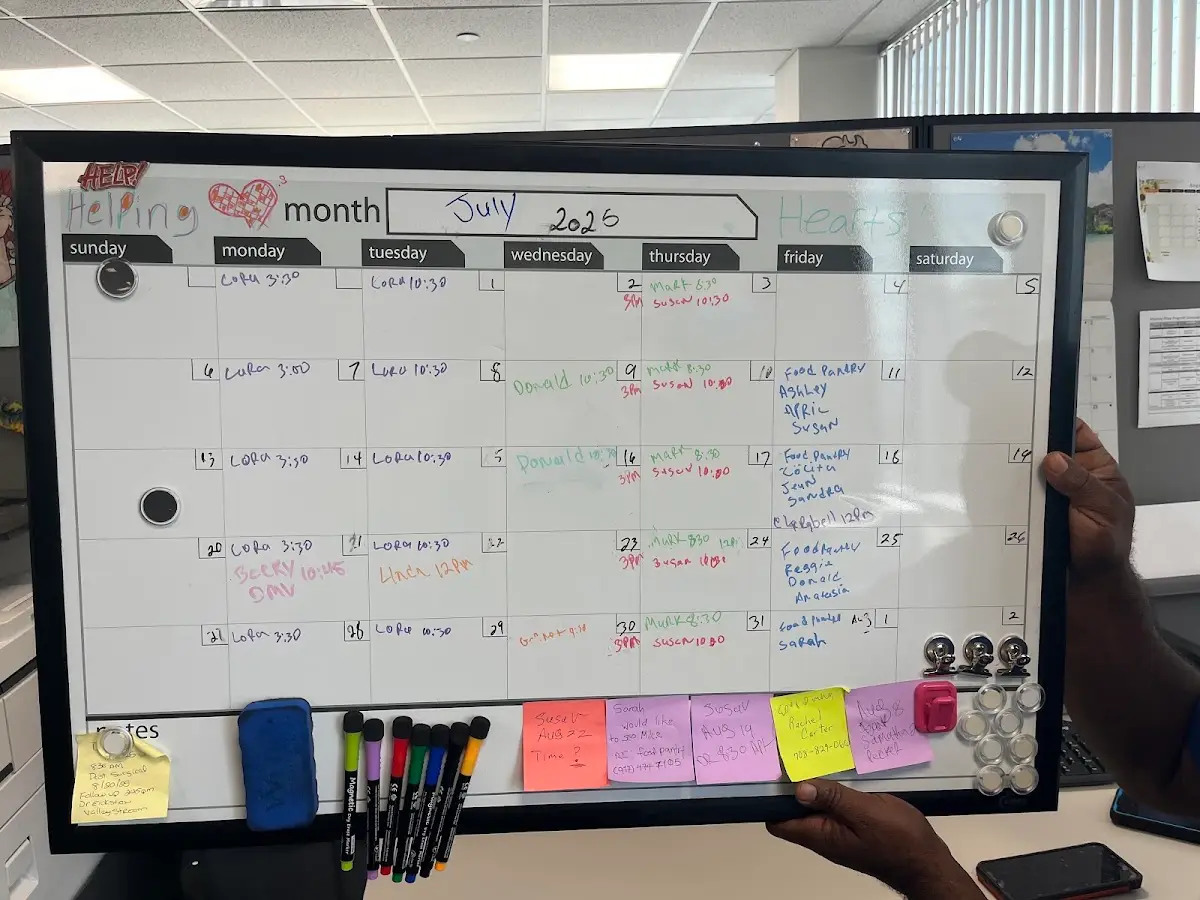 HELP!
Helping
month
July 2025
Hearts
sunday
monday
tuesday
wednesday
thursday
friday
saturday
Lora 3:30
Lora 10:30
1
2
3pm
Mark 8:30
Susan 10:30
3
4
5
6
Lora 3:00
7
Lora 10:30
8
Donald 10:30
9
3pm
Mark 8:30
Susan 10:30
10
Food Pantry
Ashley
April
Susan
11
12
13
Lora 3:30
14
Lora 10:30
5
Donald 10:30
16
3pm
Mark 8:30
Susan 10:30
17
Food Pantry
Jean
Sandra
12pm
18
19
20
Lora 3:30
Becky 10:45
DMV
21
Lora 10:30
Linda 12pm
22
23
3pm
Mark 830 12pm
Susan 10:30
24
Food Pantry
Reggie
Donald
Anatasia
25
26
27
Lora 3:30
28
Lora 10:30
29
30
3pm
Mark 8:30
Susan 10:30
31
Food Pantry
Sarah
1
2
notes
8:30 AM
Follow up
Valley Stream
Susan
Aug 22
Time?
Sarah
would like
to
food pantry
Susan
Aug 14
830
Rachel
Carter
Samantha